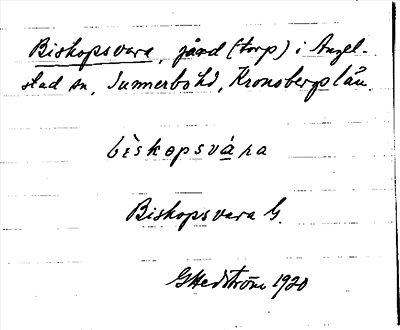 Biskopsvara, gård (torp) i Angel-
stad sn, Sunnerbo hd, Kronobergs län.
bìskopsvára
Biskopsvara G.
GHedström 1920